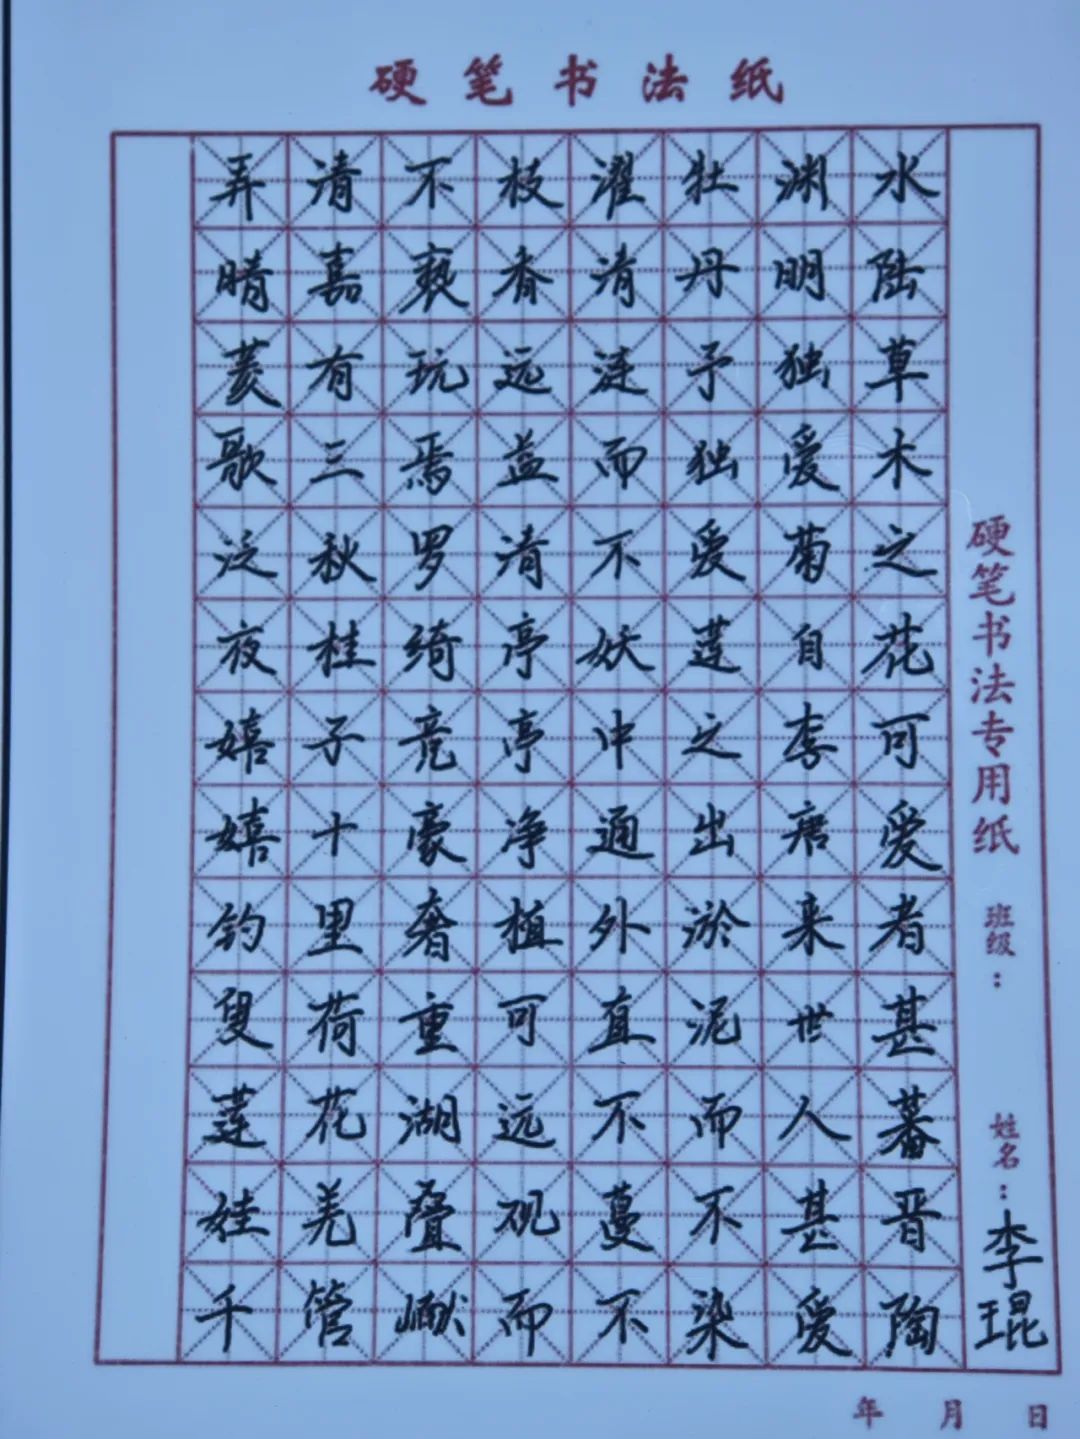 硬笔书法纸
水陆草木之花可爱者甚蕃晋陶
渊明独爱菊自李唐来世人甚爱
牡丹予独爱莲之出淤泥而不染
濯清涟而不妖中通外直不蔓不
枝香远益清亭亭净植可远观而
不亵玩焉罗绮竞豪奢重湖叠巘
清嘉有三秋桂子十里荷花羌管
弄晴菱歌泛夜嬉嬉钓叟莲娃千
硬笔书法专用纸 班级： 姓名：李琨
年 月 日